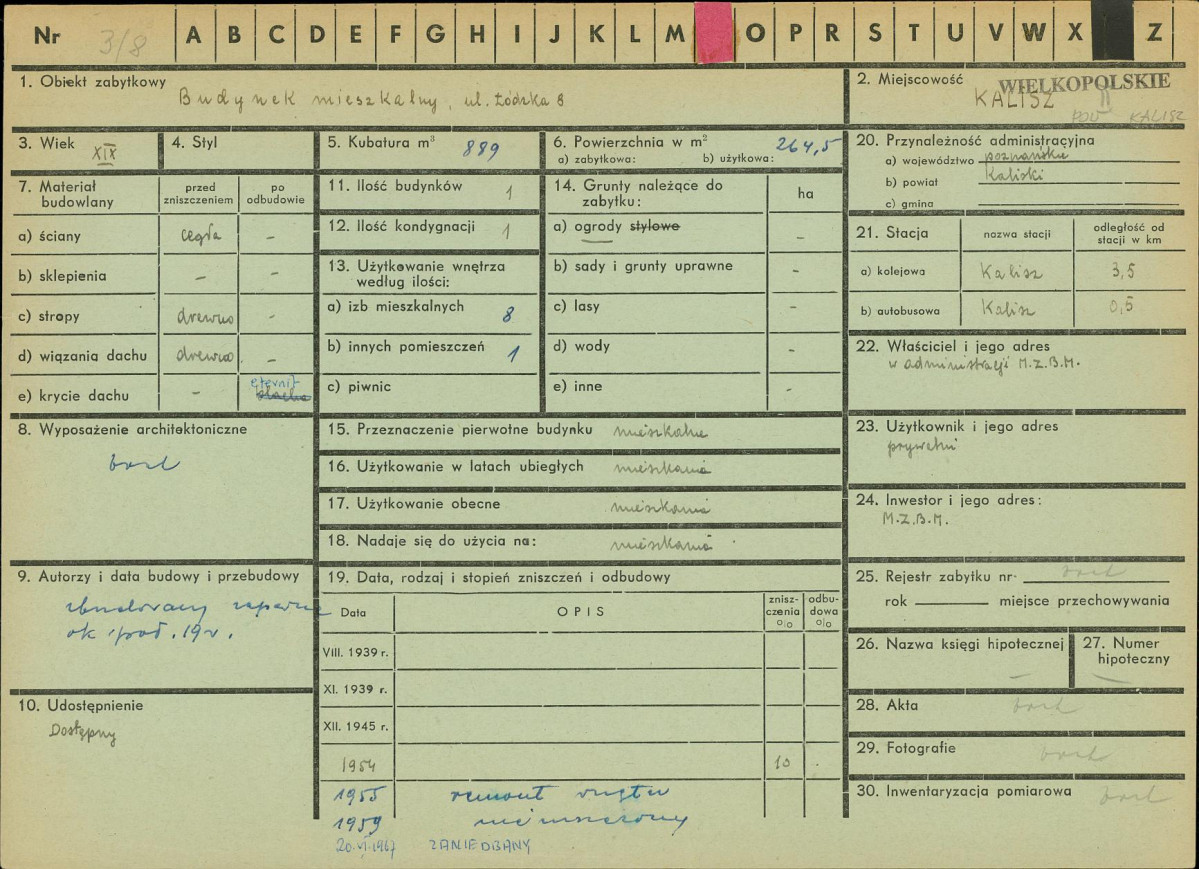 Nr 3/8 A B C D E F G H I J K L M O P R S T U V W X Z
1. Obiekt zabytkowy
Budynek mieszkalny, ul. Łódzka 8
2. Miejscowość
WIELKOPOLSKIE
KALISZ
POW KALISZ
3. Wiek XIX
4. Styl
5. Kubatura m³ 889
6. Powierzchnia w m² 264,5
a) zabytkowa: b) użytkowa:
7. Materiał budowlany
przed zniszczeniem
po odbudowie
a) ściany cegła -
b) sklepienia - -
c) stropy drewno -
d) wiązania dachu drewno -
e) krycie dachu - eternit
blacha
8. Wyposażenie architektoniczne
brak
9. Autorzy i data budowy i przebudowy
zbudowany zapewne
ok. poł. 19 w.
10. Udostępnienie
Dostępny
11. Ilość budynków 1
12. Ilość kondygnacji 1
13. Użytkowanie wnętrza
według ilości:
a) izb mieszkalnych 8
b) innych pomieszczeń 1
c) piwnic
14. Grunty należące do
zabytku:
ha
a) ogrody stylowe -
b) sady i grunty uprawne -
c) lasy -
d) wody -
e) inne -
15. Przeznaczenie pierwotne budynku mieszkalne
16. Użytkowanie w latach ubiegłych mieszkania
17. Użytkowanie obecne mieszkania
18. Nadaje się do użycia na: mieszkania
19. Data, rodzaj i stopień zniszczeń i odbudowy
Data OPIS znisz-czenia o/o odbu-dowa o/o
VIII. 1939 r.
XI. 1939 r.
XII. 1945 r.
1954 10 .
1955 remont wnętrz
1959 nie niszczony
20.VI.1967 ZANIEDBANY
20. Przynależność administracyjna
a) województwo poznańskie
b) powiat Kaliski
c) gmina
21. Stacja
nazwa stacji
odległość od
stacji w km
a) kolejowa Kalisz 3,5
b) autobusowa Kalisz 0,5
22. Właściciel i jego adres
w administracji M.Z.B.M.
23. Użytkownik i jego adres
prywatni
24. Inwestor i jego adres:
M.Z.B.M.
25. Rejestr zabytku nr. brak
rok miejsce przechowywania
26. Nazwa księgi hipotecznej
-
27. Numer
hipoteczny
-
28. Akta brak
29. Fotografie brak
30. Inwentaryzacja pomiarowa brak